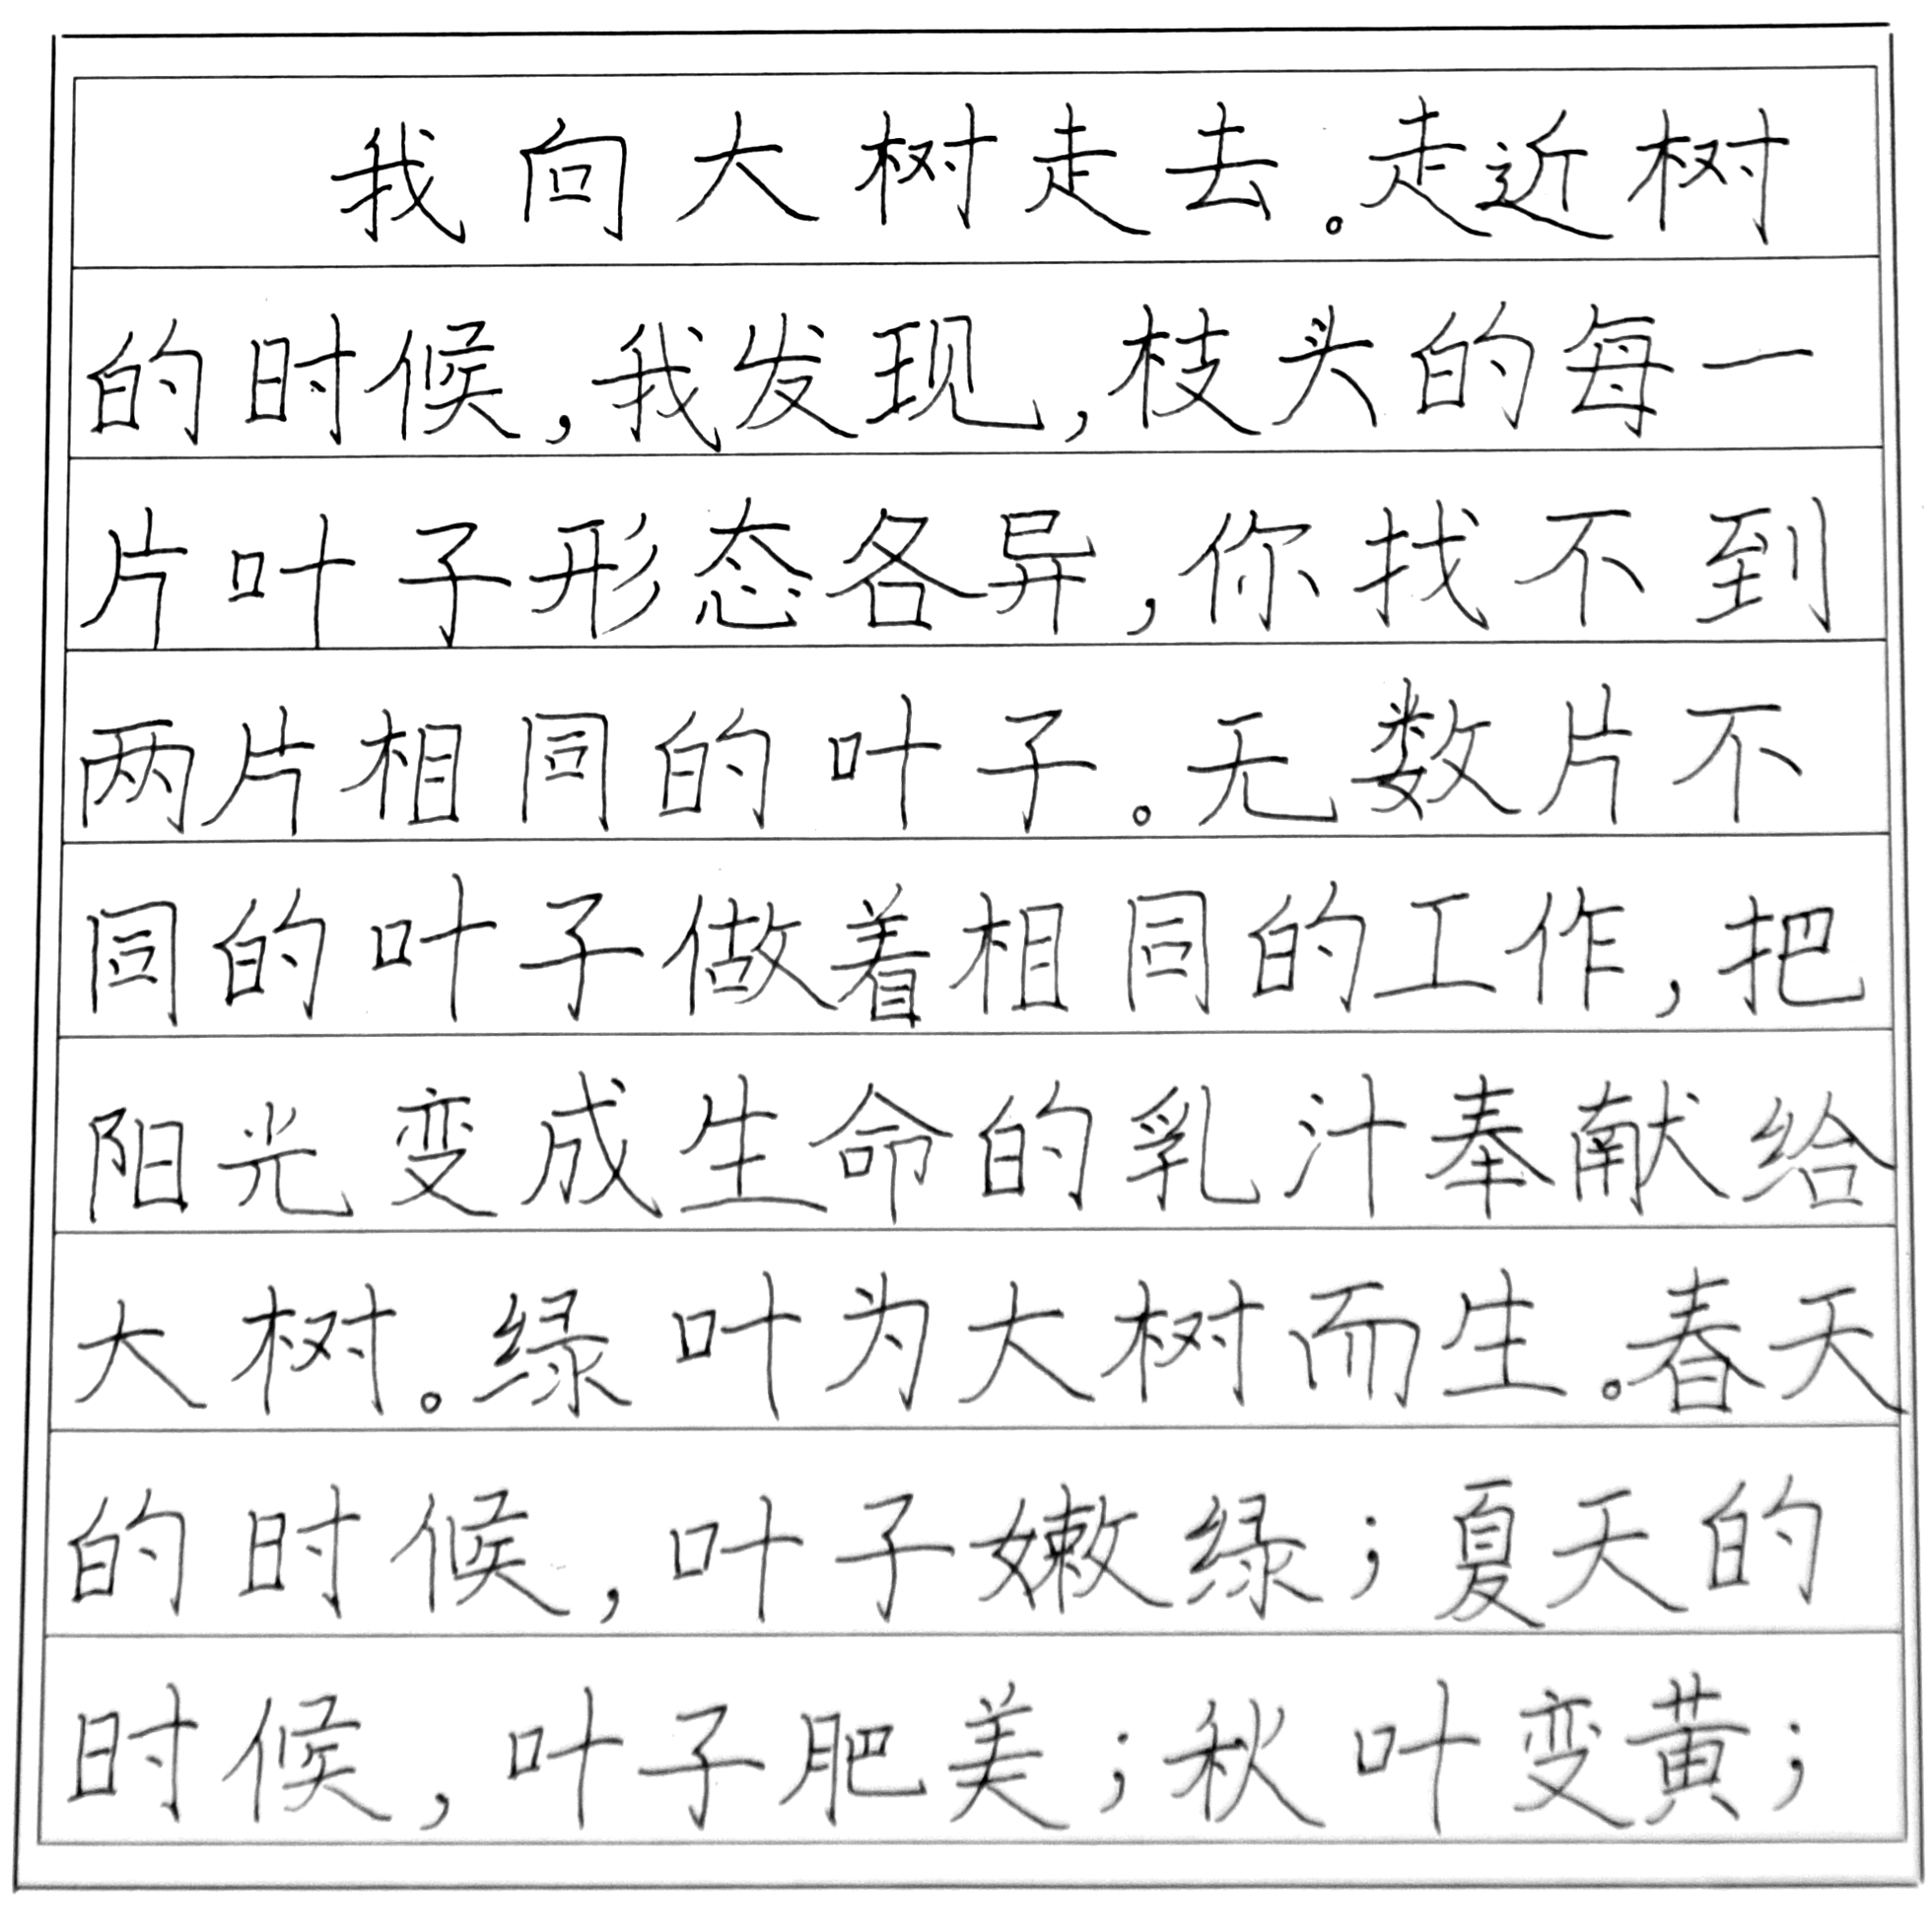 我向大树走去。走近树
的时候,我发现,枝头的每一
片叶子形态各异,你找不到
两片相同的叶子。无数片不
同的叶子做着相同的工作,把
阳光变成生命的乳汁奉献给
大树。绿叶为大树而生。春天
的时候,叶子嫩绿;夏天的
时候,叶子肥美;秋叶变黄;